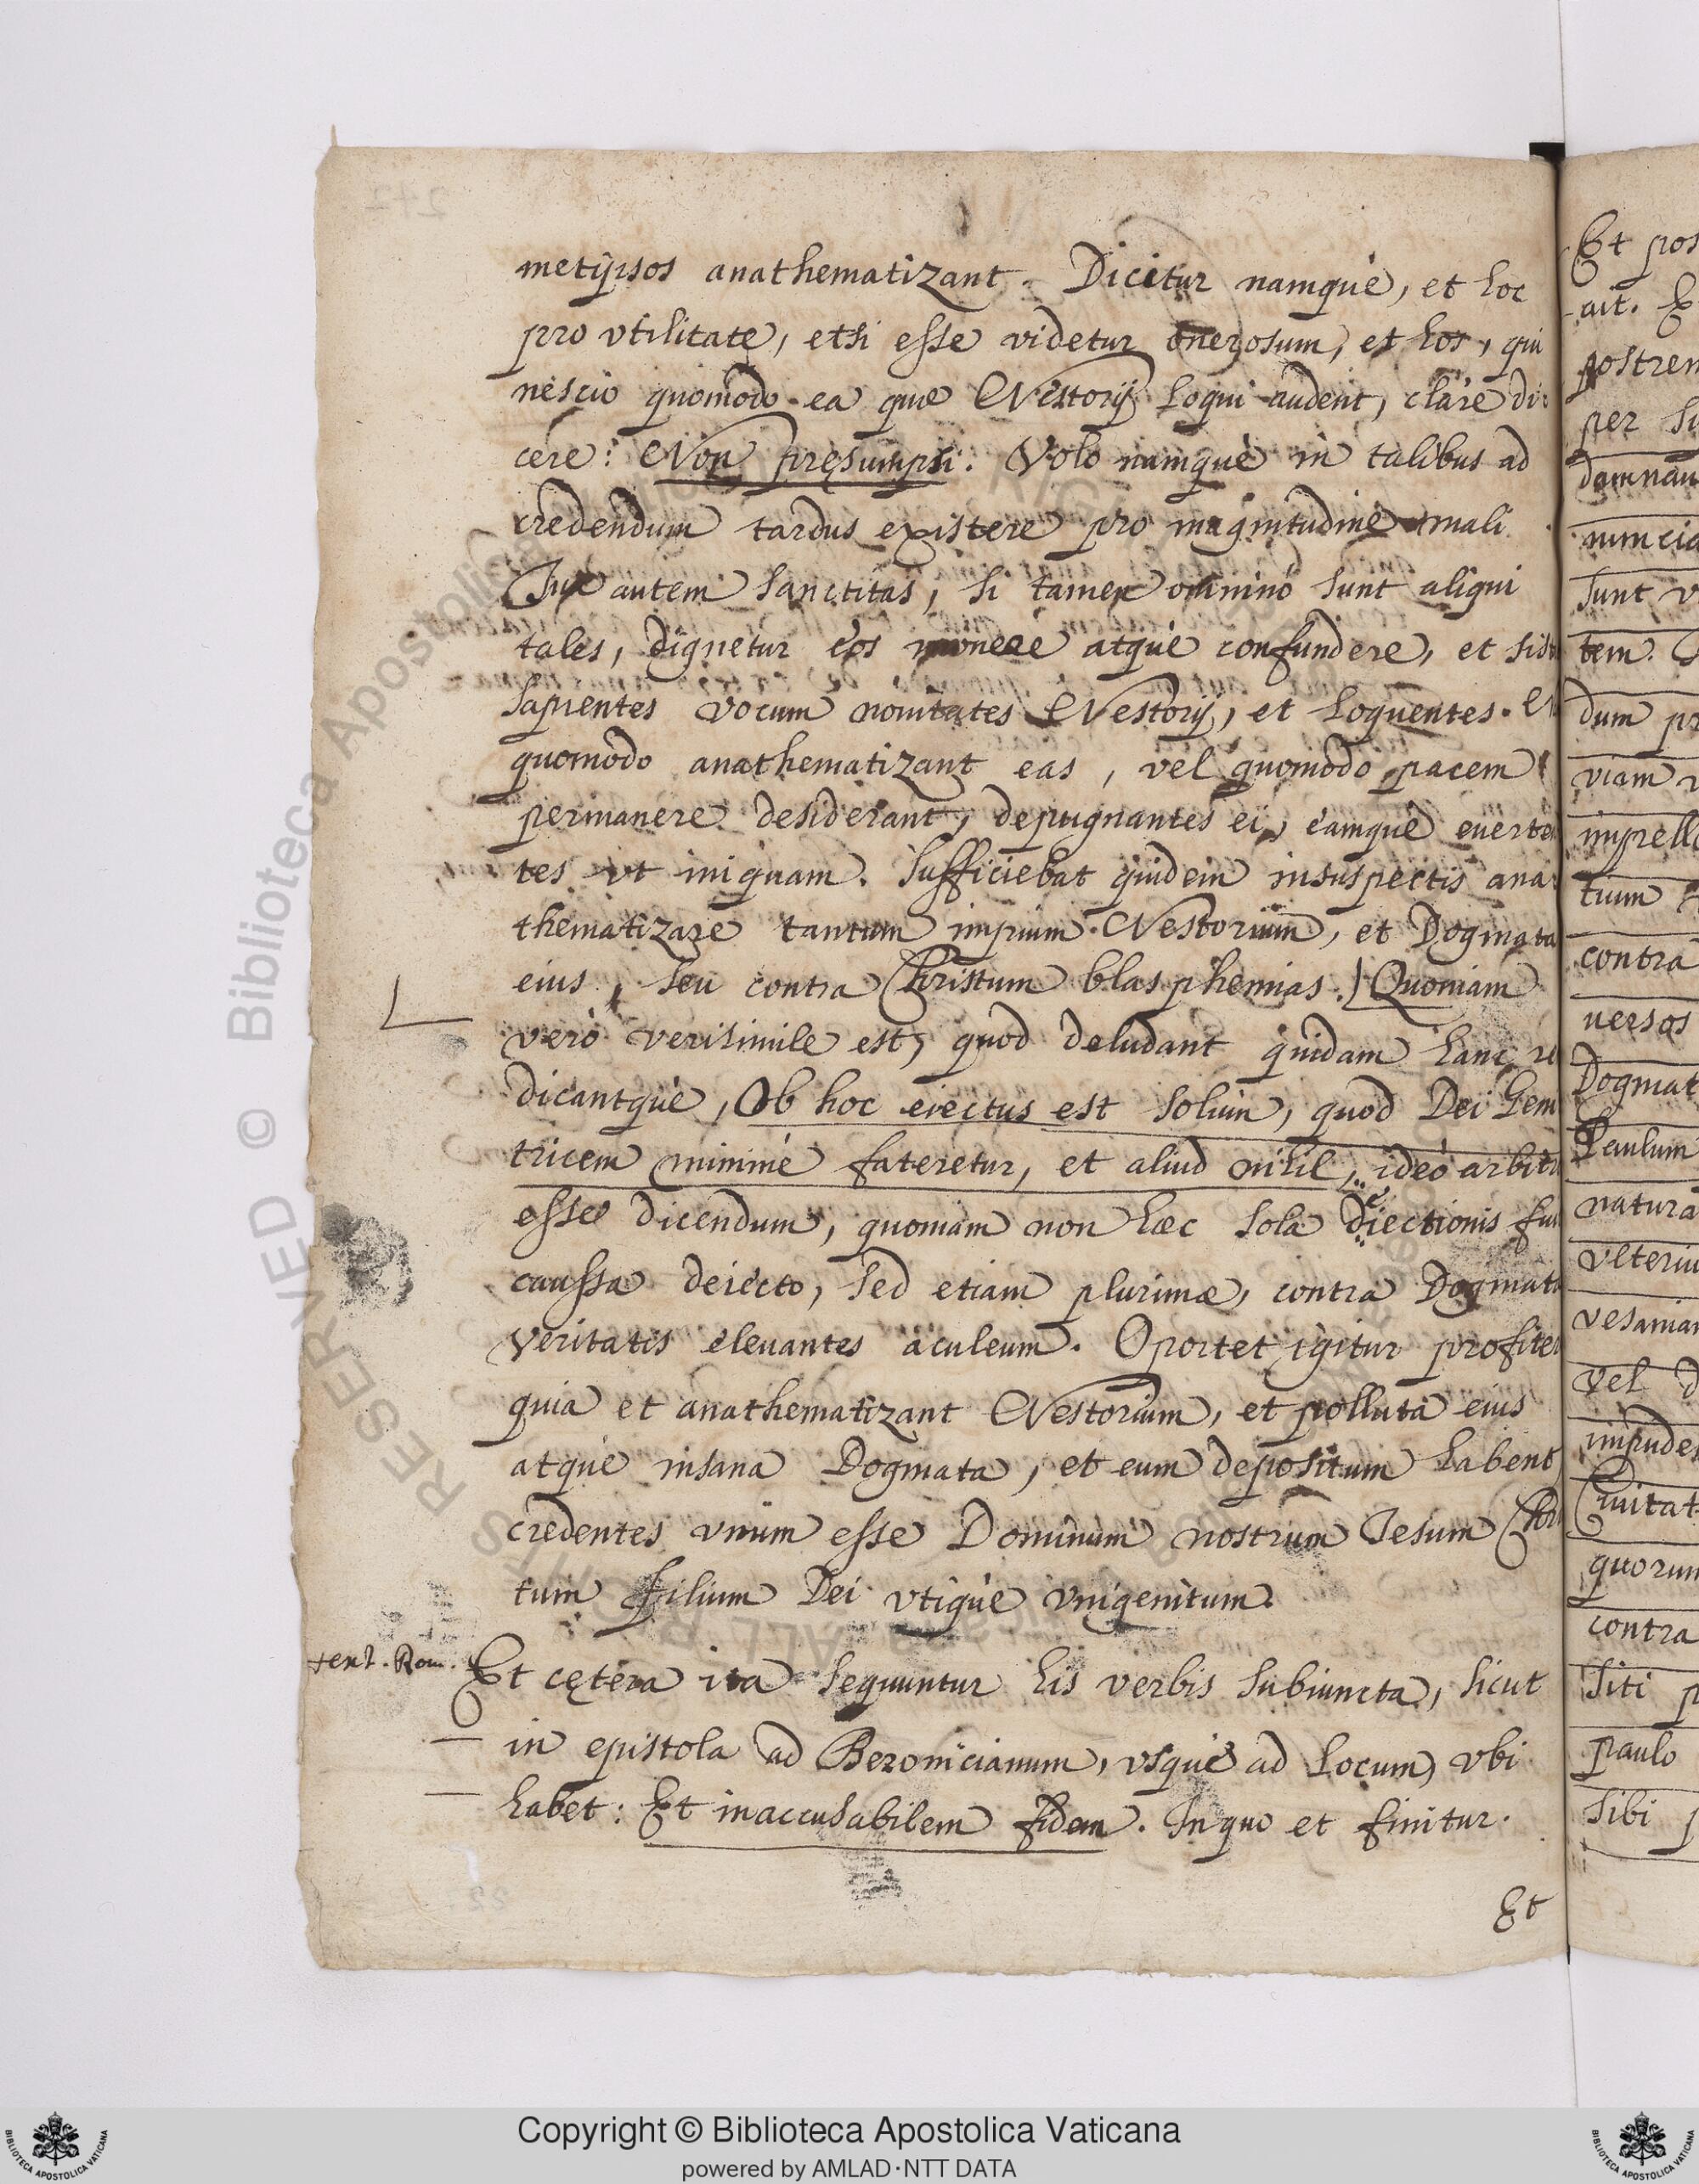 metipsos anathematizant. Dicitur namquè, et hoc
pro vtilitate, etsi esse videtur onerosum, et hos, qui
nescio quomodo ea que Nestorij loqui audent, clare di
cere: Non pręsumpsi. Volo namquè in talibus ad
credendum tardus existere pro magnitudine mali.
Tua autem sanctitas, si tamen omnino sunt aliqui
tales, dignetur eos monere atque confundere, et
sapientes vocum nouitates Nestorij, et loquentes.
quomodo anathematizant eas, vel quomodo pacem
permanere desiderant, depugnantes ei, eamquè euerten
tes vt iniquam. Sufficiebat quidem insuspectis ana
thematizare tantum impium Nestorium, et Dogmata
eius, seu contra Christum blasphemias. Quoniam
verò verisimile est, quod deludant quidam hanc re
dicantquè, Ob hoc eiectus est solum, quod Dei Geni
tricem minimè fateretur, et aliud nihil, ideò arbitr
esse dicendum, quoniam non hæc sola deiectionis fui
caussa deiecto, sed etiam plurimæ, contra Dogmata
veritatis eleuantes aculeum. Oportet igitur profiteri
quia et anathematizant Nestorium, et polluta eius
atque insana Dogmata, et eum depositum habent
credentes vnum esse Dominum nostrum Iesum Chri
tum filium Dei vtique vnigenitum.
text. Rom. Et cętera ita sequuntur his verbis subiuncta, sicut
in epistola ad Beronicianum, vsque ad locum, vbi
habet: Et inaccusabilem fidem. In quo et finitur.
Et
Et pos
ait. E
postrem
per su
damnau
nuncia
sunt v
tem.
dum pr
viam
impell
tium
contra
uersos
Dogmat
Paulum
natura
vlteriu
vesaniam
vel d
impude
Ciuitat
quorum
contra
siti p
paulo
sibi p
© Biblioteca Apostolica Vaticana
ALL RIGHTS RESERVED
Copyright © Biblioteca Apostolica Vaticana
powered by AMLAD·NTT DATA
BIBLIOTECA APOSTOLICA VATICANA
BIBLIOTECA APOSTOLICA VATICANA